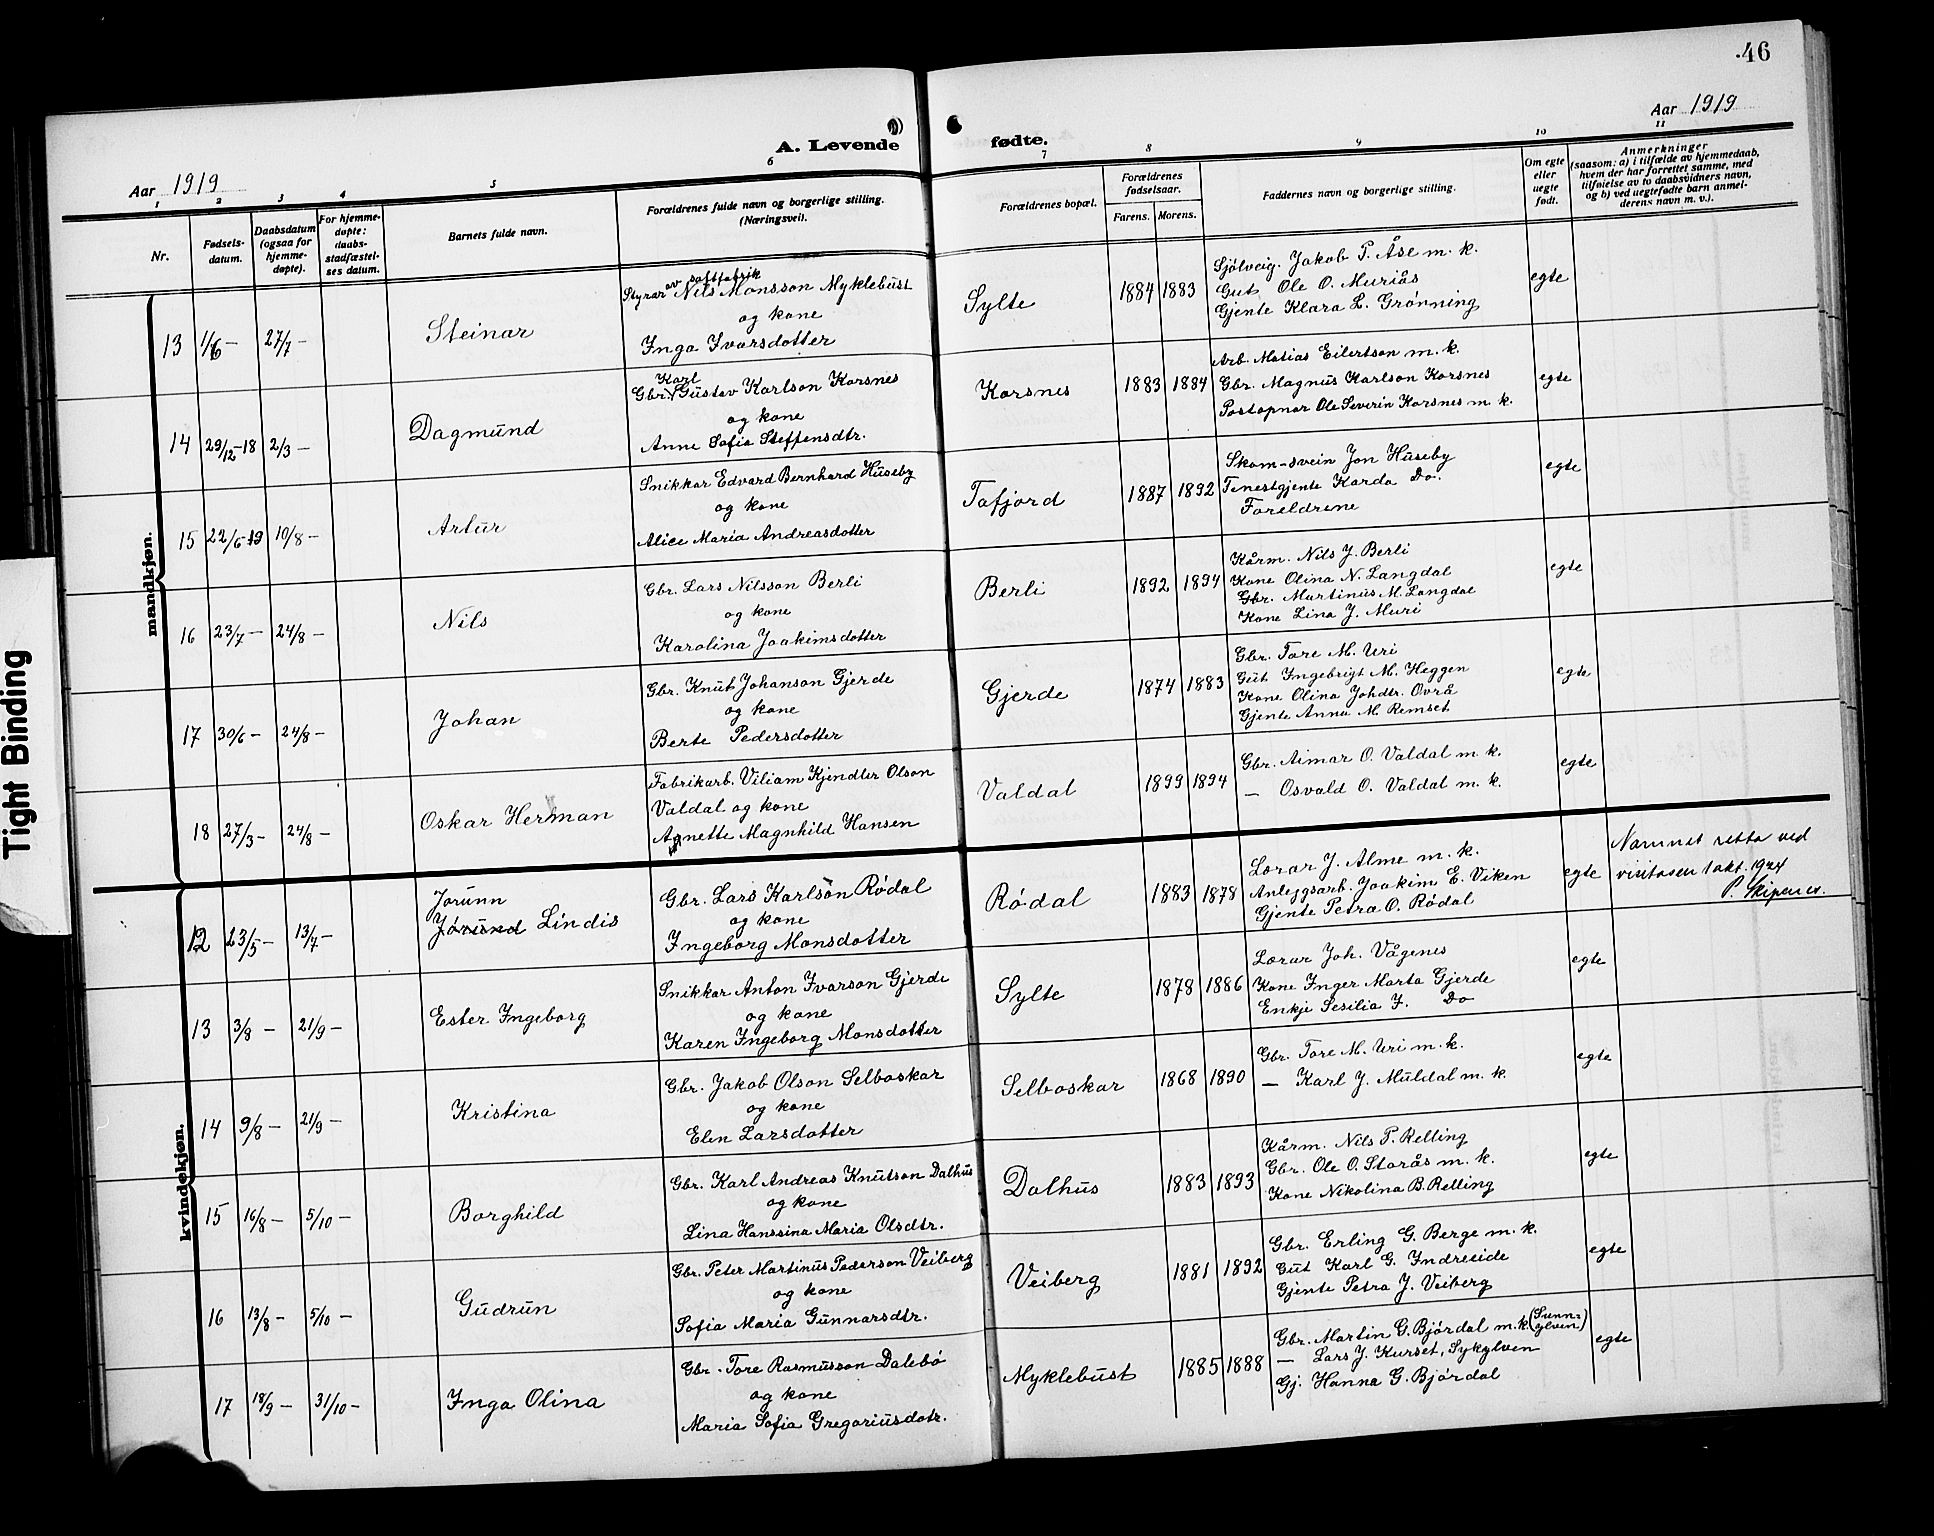 46
Aar 1919
A. Levende fødte.
Aar 1919
1 2 3 4 5 6 7 8 9 10 11
Nr.
Fødsels-
datum.
Daabsdatum
(ogsaa for
hjemme-
døpte).
For hjemme-
døpte:
daabs-
stadfæstel-
ses datum.
Barnets fulde navn.
Forældrenes fulde navn og borgerlige stilling.
(Næringsvei).
Forældrenes bopæl.
Forældrenes
fødselsaar.
Farens. Morens.
Faddernes navn og borgerlige stilling.
Om egte
eller
uegte
født.
Anmerkninger
(saasom: a) i tilfælde av hjemmedaab,
hvem der har forrettet samme, med
tilføielse av to daabsvidners navn,
og b) ved uegtefødte barn anmel-
derens navn m. v.).
mandkjøn.
13 1/6 – 27/7 – Steinar
Styrar av saftfabrik Nils Monsson Myklebust
og kone
Inga Ivarsdotter
Sylte 1884 1883
Sjølveig. Jakob P. Åse m. k.
Gut Ole O. Muriås
Gjente Klara L. Grønning
egte
14 29/12-18 2/3 – Dagmund
Gbr. Karl Gustav Karlson Korsnes
og kone
Anne Sofia Steffensdtr.
Korsnes 1883 1884
Arb. Matias Eilertson m. k.
Gbr. Magnus Karlson Korsnes
Postopnar Ole Severin Korsnes m. k.
egte
15 22/6-19 10/8 – Artur
Snikkar Edvard Bernhard Huseby
og kone
Alice Maria Andreasdotter
Tafjord 1887 1892
Skom-svein Jon Huseby
Tenestgjente Karda Do.
Foreldrene
egte
16 23/7 – 24/8 – Nils
Gbr. Lars Nilsson Berli
og kone
Karolina Joakimsdotter
Berli 1892 1894
Kårm. Nils J. Berli
Kone Olina N. Langdal
Gbr. Martinus M. Langdal
Kone Lina J. Muri
egte
17 30/6 – 24/8 – Johan
Gbr. Knut Johanson Gjerde
og kone
Berte Pedersdotter
Gjerde 1874 1883
Gbr. Tore M. Uri
Gut Ingebrigt M. Heggen
Kone Olina Johdtr. Ovrå
Gjente Anna M. Remset
egte
18 27/3 – 24/8 – Oskar Herman
Fabrikarb. Viliam Kjendler Olson
Valdal og kone
Agnette Magnhild Hansen
Valdal 1899 1894
Gbr. Aimar O. Valdal m. k.
— Osvald O. Valdal m. k.
egte
kvindekjøn.
12 23/5 – 13/7 –
Jorunn
Jørund Lindis
Gbr. Lars Karlson Rødal
og kone
Ingeborg Monsdotter
Rødal 1883 1878
Lærar J. Alme m. k.
Anleggsarb. Joakim E. Viken
Gjente Petra O. Rødal
egte
Namnet retta ved
visitasen 1 okt. 1924
13 3/8 – 21/9 – Ester Ingeborg
Snikkar Anton Ivarson Gjerde
og kone
Karen Ingeborg Monsdotter
Sylte 1878 1886
Lærar Joh. Vågenes
Kone Inger Marta Gjerde
Enkje Sesilia I. Do
egte
14 9/8 – 21/9 – Kristina
Gbr. Jakob Olson Selboskar
og kone
Elen Larsdotter
Selboskar 1868 1890
Gbr. Tore M. Uri m. k.
— Karl J. Muldal m. k.
egte
15 16/8 – 5/10 – Borghild
Gbr. Karl Andreas Knutson Dalhus
og kone
Lina Hanssina Maria Olsdtr.
Dalhus 1883 1893
Kårm. Nils P. Relling
Gbr. Ole O. Storås m. k.
Kone Nikolina B. Relling
egte
16 13/8 – 5/10 – Gudrun
Gbr. Peter Martinus Pederson Veiberg
og kone
Sofia Maria Gunnarsdtr.
Veiberg 1881 1892
Gbr. Erling G. Berge m. k.
Gut Karl G. Indreeide
Gjente Petra J. Veiberg
egte
17 18/9 – 31/10 – Inga Olina
Gbr. Tore Rasmusson Dalebø
og kone
Maria Sofia Gregoriusdotr.
Myklebust 1885 1888
Gbr. Martin G. Bjørdal m. k. (Sunn-
ylven)
— Lars J. Kurset, Sykylven
Gj. Hanna G. Bjørdal
egte
Tight Binding